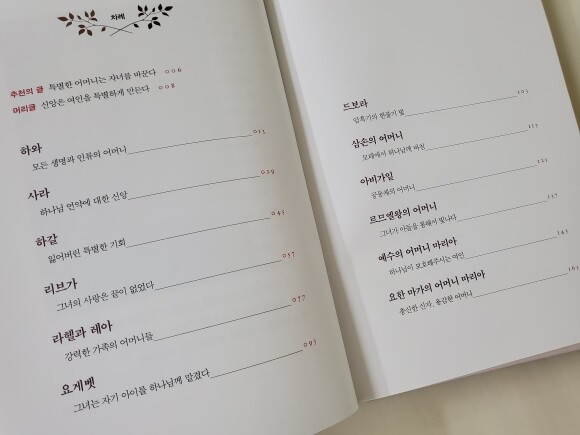 차례
추천의 글 특별한 어머니는 자녀를 바꾼다 006
머리글 신앙은 여인을 특별하게 만든다 008
하와
모든 생명과 인류의 어머니 013
사라
하나님 언약에 대한 신앙 029
하갈
잃어버린 특별한 기회 043
리브가
그녀의 사랑은 끝이 없었다 057
라헬과 레아
강력한 가족의 어머니들 077
요게벳
그녀는 자기 아이를 하나님께 맡겼다 093
드보라
암흑기의 한줄기 빛 103
삼손의 어머니
모태에서 하나님께 바친 113
아비가일
공동체의 어머니 123
르므엘왕의 어머니
그녀가 아들을 통해서 빛나다 137
예수의 어머니 마리아
하나님이 보호해주시는 여인 143
요한 마가의 어머니 마리아
충신한 신자, 용감한 어머니 163